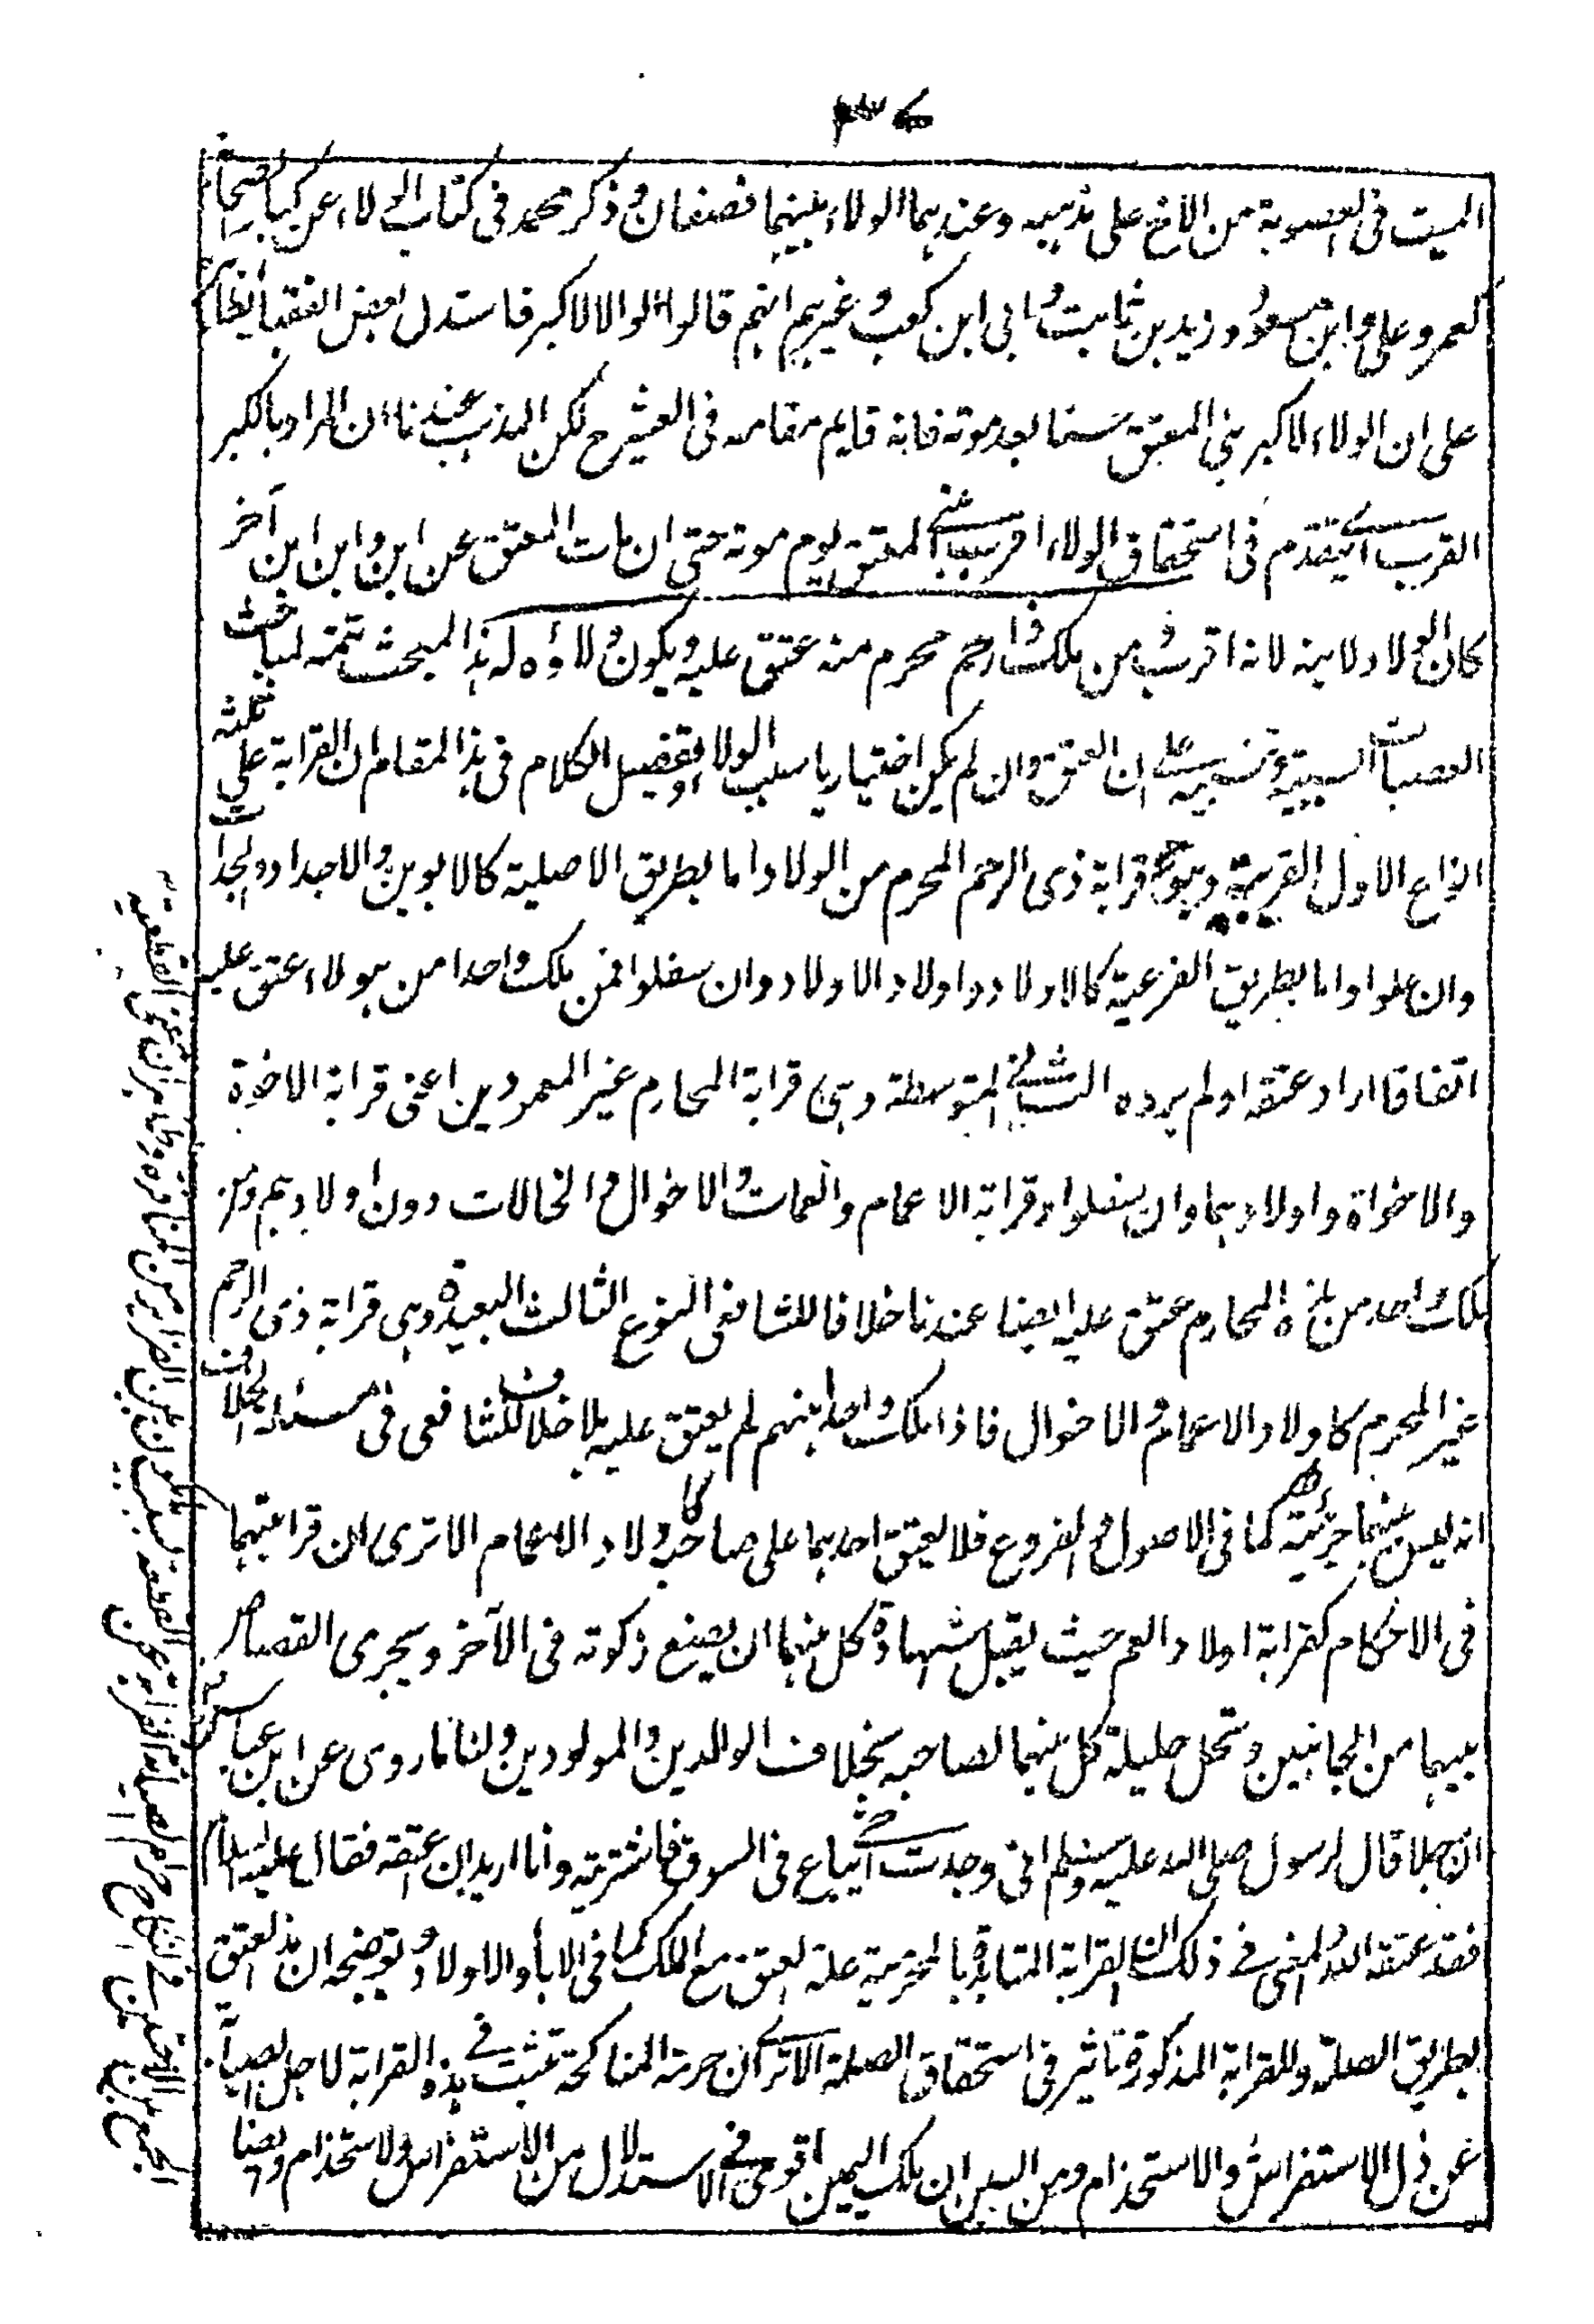 ٣٧
الميت فى العصوبة من الاخ على مذهبه وعندهما الولاء بينهما نصفان وذكر محمد فى كتاب الولاء عن كبار الصحابة
كعمر وعلى وابن مسعود وزيد بن ثابت وابى ابن كعب وغيرهم انهم قالوا الولاء للاكبر فاستدل بعض الفقهاء
على ان الولاء لاكبر بنى المعتق سنا بعد موته فانه قايم مقامه فى العشيرة لكن المذهب عندنا ان المراد بالكبر
القرب اى يتقدم فى استحقاق الولاء اقرب الى المعتق يوم موته حتى ان مات المعتق عن ابن وابن ابن آخر
كان الولاء لابنه لانه اقرب ومن ملك ذا رحم محرم منه عتق عليه ويكون ولاؤه له هذا المبحث تتمة لمباحث
العصبات السببية وتنبيه على ان العتق وان لم يكن اختياريا سبب الولاء وتفصيل الكلام فى هذا المقام ان القرابة على ثلثة
انواع الاول القريبة وهى قرابة ذى الرحم المحرم من الولاد اما بطريق الاصلية كالابوين والاجداد والجدات
وان علوا واما بطريق الفرعية كالاولاد واولاد الاولاد وان سفلوا فمن ملك واحدا من هولاء عتق عليه
اتفاقا اراد عتقه او لم يرده الثانى المتوسطة وهى قرابة المحارم غير العمودين اعنى قرابة الاخوة
والاخواة واولادهما وان سفلوا وقرابة الاعمام والعمات والاخوال والخالات دون اولادهم ومن
ملك واحد من هذه المحارم عتق عليه ايضا عندنا خلافا للشافعى النوع الثالث البعيدة وهى قرابة ذى الرحم
غير المحرم كاولاد الاعمام والاخوال فاذا ملك واحدا منهم لم يعتق عليه بلا خلاف للشافعى فى مسئلة الخلاف
انه ليس بينهما جزئية كما فى الاصول والفروع فلا يعتق احدهما على صاحبه كاولاد الاعمام الا ترى ان قرابتهما
فى الاحكام كقرابة اولاد العم حيث يقبل شهادة كل منهما ان يضع زكوته فى الآخر ويجرى القصاص
بينهما من الجانبين وتحل حليلة كل منهما لصاحبه بخلاف الوالدين والمولودين ولنا ما روى عن ابن عباس
ان رجلا قال لرسول صلى الله عليه وسلم انى وجدت اخى يباع فى السوق فاشتريته وانا اريد ان عتقه فقال عليه السلام
فقد عتقه الله والمعنى فى ذلك ان القرابة المتابدة بالمحرمية علة لعتق مع الملك كما فى الاباء والاولاد وتوضيحه ان هذا العتق
بطريق الصلة وللقرابة المذكورة تاثير فى استحقاق الصلة الا ترى ان حرمة المناكحة تثبت فى هذه القرابة لاجل الصيانة
عن ذل الاستفراش والاستخدام ومن البين ان ملك اليمين اقوى فى الاستدلال من الاستفراش والاستخدام وايضا